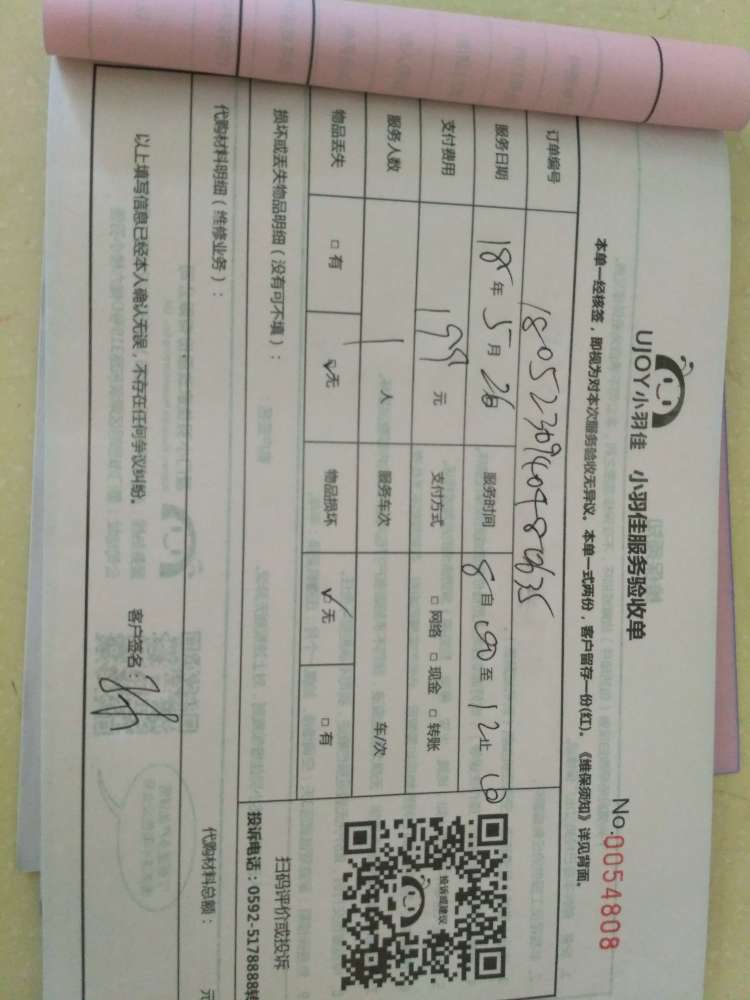 UJOY小羽佳 小羽佳服务验收单
No.0054808
本单一经核签，即视为对本次服务验收无异议。本单一式两份，客户留存一份(红)。《维保须知》详见背面。
订单编号
服务日期 18年5月26日 服务时间 8自00至12止00
支付费用 199元 支付方式 □网络 □现金 □转账
服务人数 1人 服务车次 车/次
物品丢失 □有 ☑无 物品损坏 ☑无 □有
投诉或建议
损坏或丢失物品明细（没有可不填）：
扫码评价或投诉
投诉电话：0592-5178888转
代购材料明细（维修业务）：
代购材料总额： 元
以上填写信息已经本人确认无误，不存在任何争议纠纷。 客户签名：